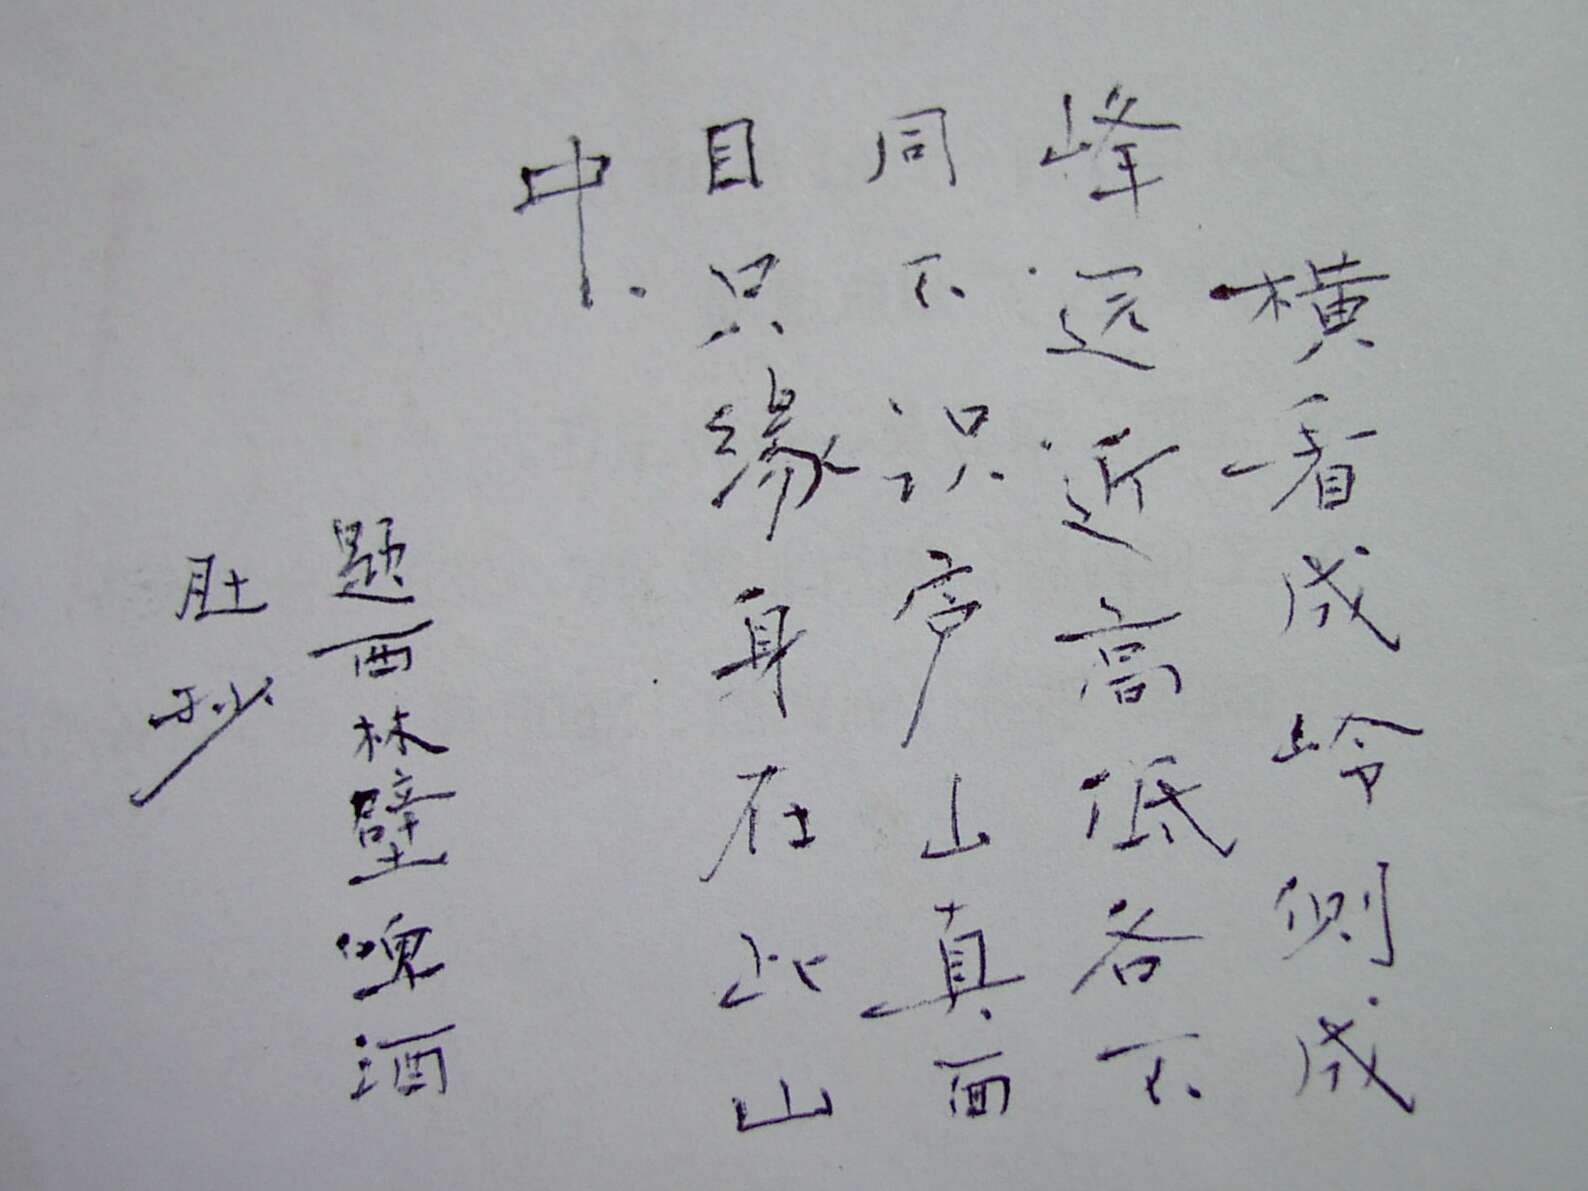 横看成岭侧成
峰远近高低各不
同不识庐山真面
目只缘身在此山
中、
题西林壁啤酒
肚抄